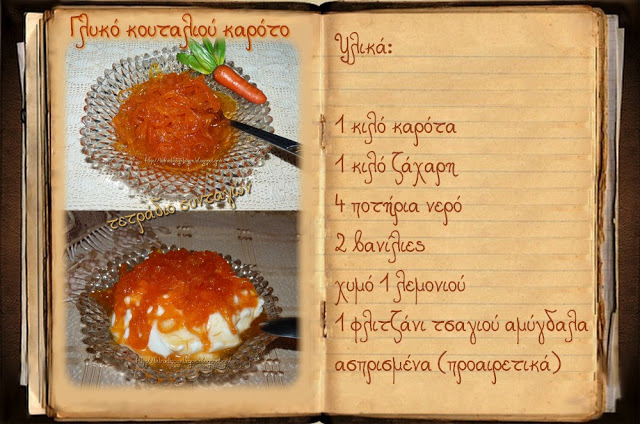 Γλυκό κουταλιού καρότο
τετράδιο συνταγών
Υλικά:
1 κιλό καρότα
1 κιλό ζάχαρη
4 ποτήρια νερό
2 βανίλιες
χυμό 1 λεμονιού
1 φλιτζάνι τσαγιού αμύγδαλα
ασπρισμένα (προαιρετικά)